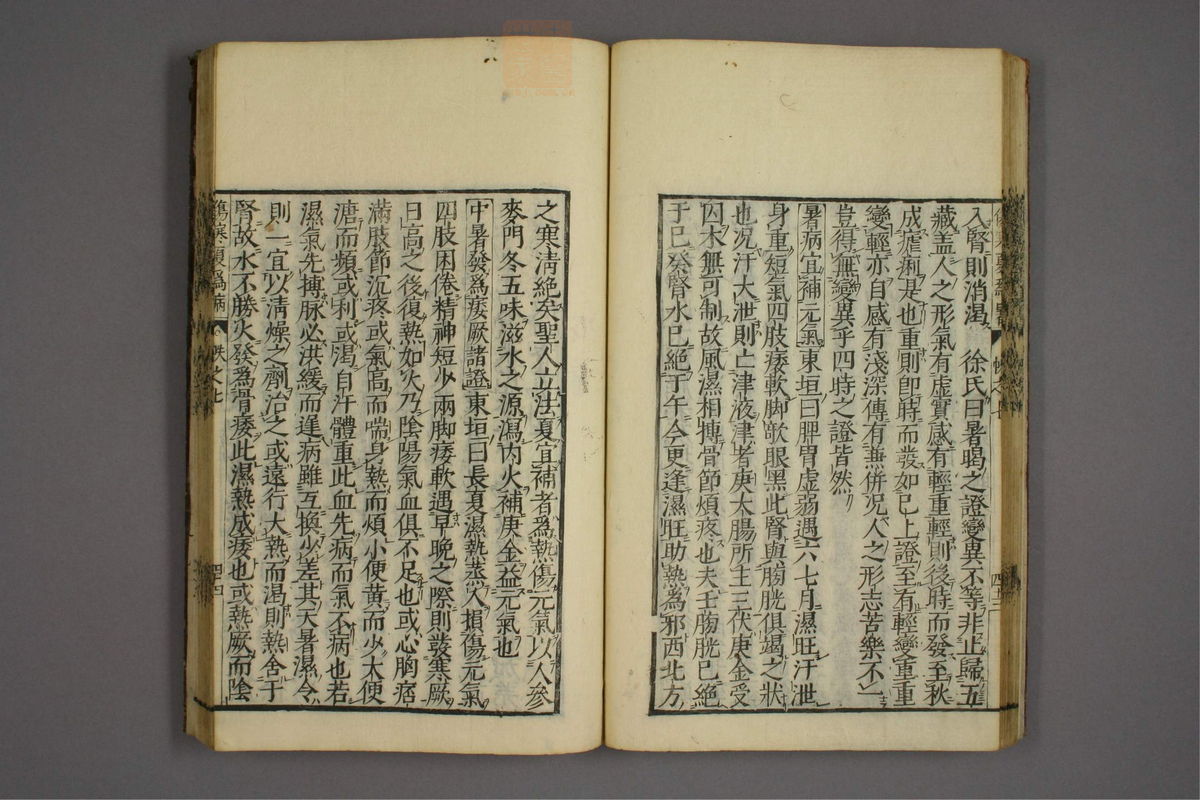 入腎則消渴　徐氏曰暑暍之證變異不等非止歸五
藏盖人之形氣有虛實感有輕重輕則後時而發至秋
成瘧痢是也重則即時而發如已上證至有輕變重重
變輕亦自感有淺深傳有兼併况人之形志苦樂不一
豈得無變異乎四時之證皆然
暑病宜補元氣東垣曰脾胃虛弱遇六七月濕旺汗泄
身重短氣四肢痿軟脚欹眼黑此腎與膀胱俱竭之狀
也况汗大泄則亡津液津者庚大腸所主三伏庚金受
囚木無可制故風濕相搏骨節煩疼也夫壬膀胱已絕
于巳癸腎水已絕于午今更逢濕旺助熱為邪西北方
之寒清絕矣聖人立法夏宜補者為熱傷元氣以人參
麥門冬五味滋水之源瀉丙火補庚金益元氣也
中暑發為痿厥諸證東垣曰長夏濕熱蒸人損傷元氣
四肢困倦精神短少兩脚痿軟遇早晚之際則發寒厥
日高之後復熱如火乃陰陽氣血俱不足也或心胸痞
滿肢節沉疼或氣高而喘身熱而煩小便黃而少大便
溏而頻或利或渴自汗體重此血先病而氣不病也若
濕氣先搏脉必洪緩而遲病雖互換少差其天暑濕令
則一宜以清燥之劑治之或遠行大熱而渴則熱舍于
腎故水不勝火發為骨痿此濕熱成痿也或熱厥而陰
傷寒類爲病
帙之七
四十四